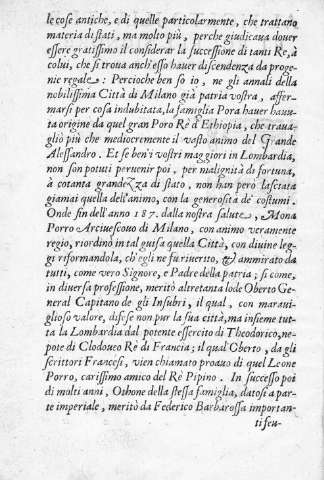 le cose antiche, e di quelle particolarmente, che trattano
materia di stati, ma molto più, perche giudicaua douer
essere gratissimo il considerar la successione di tanti Re, à
colui, che si troua anch'esso hauer discendenza da proge-
nie regale: Percioche ben so io, ne gli annali della
nobilissima Città di Milano già patria vostra, affer-
marsi per cosa indubitata, la famiglia Pora hauer hauu-
ta origine da quel gran Poro Rè d'Ethiopia, che traua-
gliò più che mediocremente il vasto animo del Grande
Alessandro. Et se ben'i vostri maggiori in Lombardia,
non son potuti peruenir poi, per malignità di fortuna,
à cotanta grandezza di stato, non han però lasciata
giamai quella dell'animo, con la generosità de' costumi.
Onde sin dell'anno 187. dalla nostra salute, Mona
Porro Arciuescouo di Milano, con animo veramente
regio, riordinò in tal guisa quella Città, con diuine leg-
gi reformandola, ch'egli ne fu riuerito, & ammirato da
tutti, come vero Signore, e Padre della patria; si come,
in diuersa professione, meritò altretanta lode Oberto Ge-
neral Capitano de gli Insubri, il qual, con maraui-
glioso valore, difese non pur la sua città, ma insieme tut-
ta la Lombardia dal potente essercito di Theodorico, ne-
pote di Clodoueo Rè di Francia; il qual Oberto, da gli
scrittori Francesi, vien chiamato proauo di quel Leone
Porro, carissimo amico del Rè Pipino. In successo poi
di molti anni, Othone della stessa famiglia, datosi a par-
te imperiale, meritò da Federico Barbarossa importan-
ti feu-